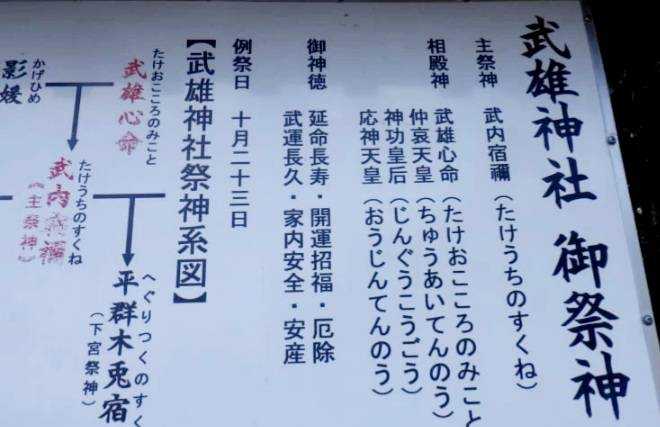 武雄神社 御祭神
主祭神 武内宿禰(たけうちのすくね)
相殿神 武雄心命(たけおこころのみこと
仲哀天皇(ちゅうあいてんのう)
神功皇后(じんぐうこうごう)
応神天皇(おうじんてんのう)
御神徳 延命長寿・開運招福・厄除
武運長久・家内安全・安産
例祭日 十月二十三日
【武雄神社祭神系図】
たけおこころのみこと
武雄心命
かげひめ
影媛
たけうちのすくね
武内宿禰
《主祭神》
へぐりつくのすく
平群木兎宿
(下宮祭神)